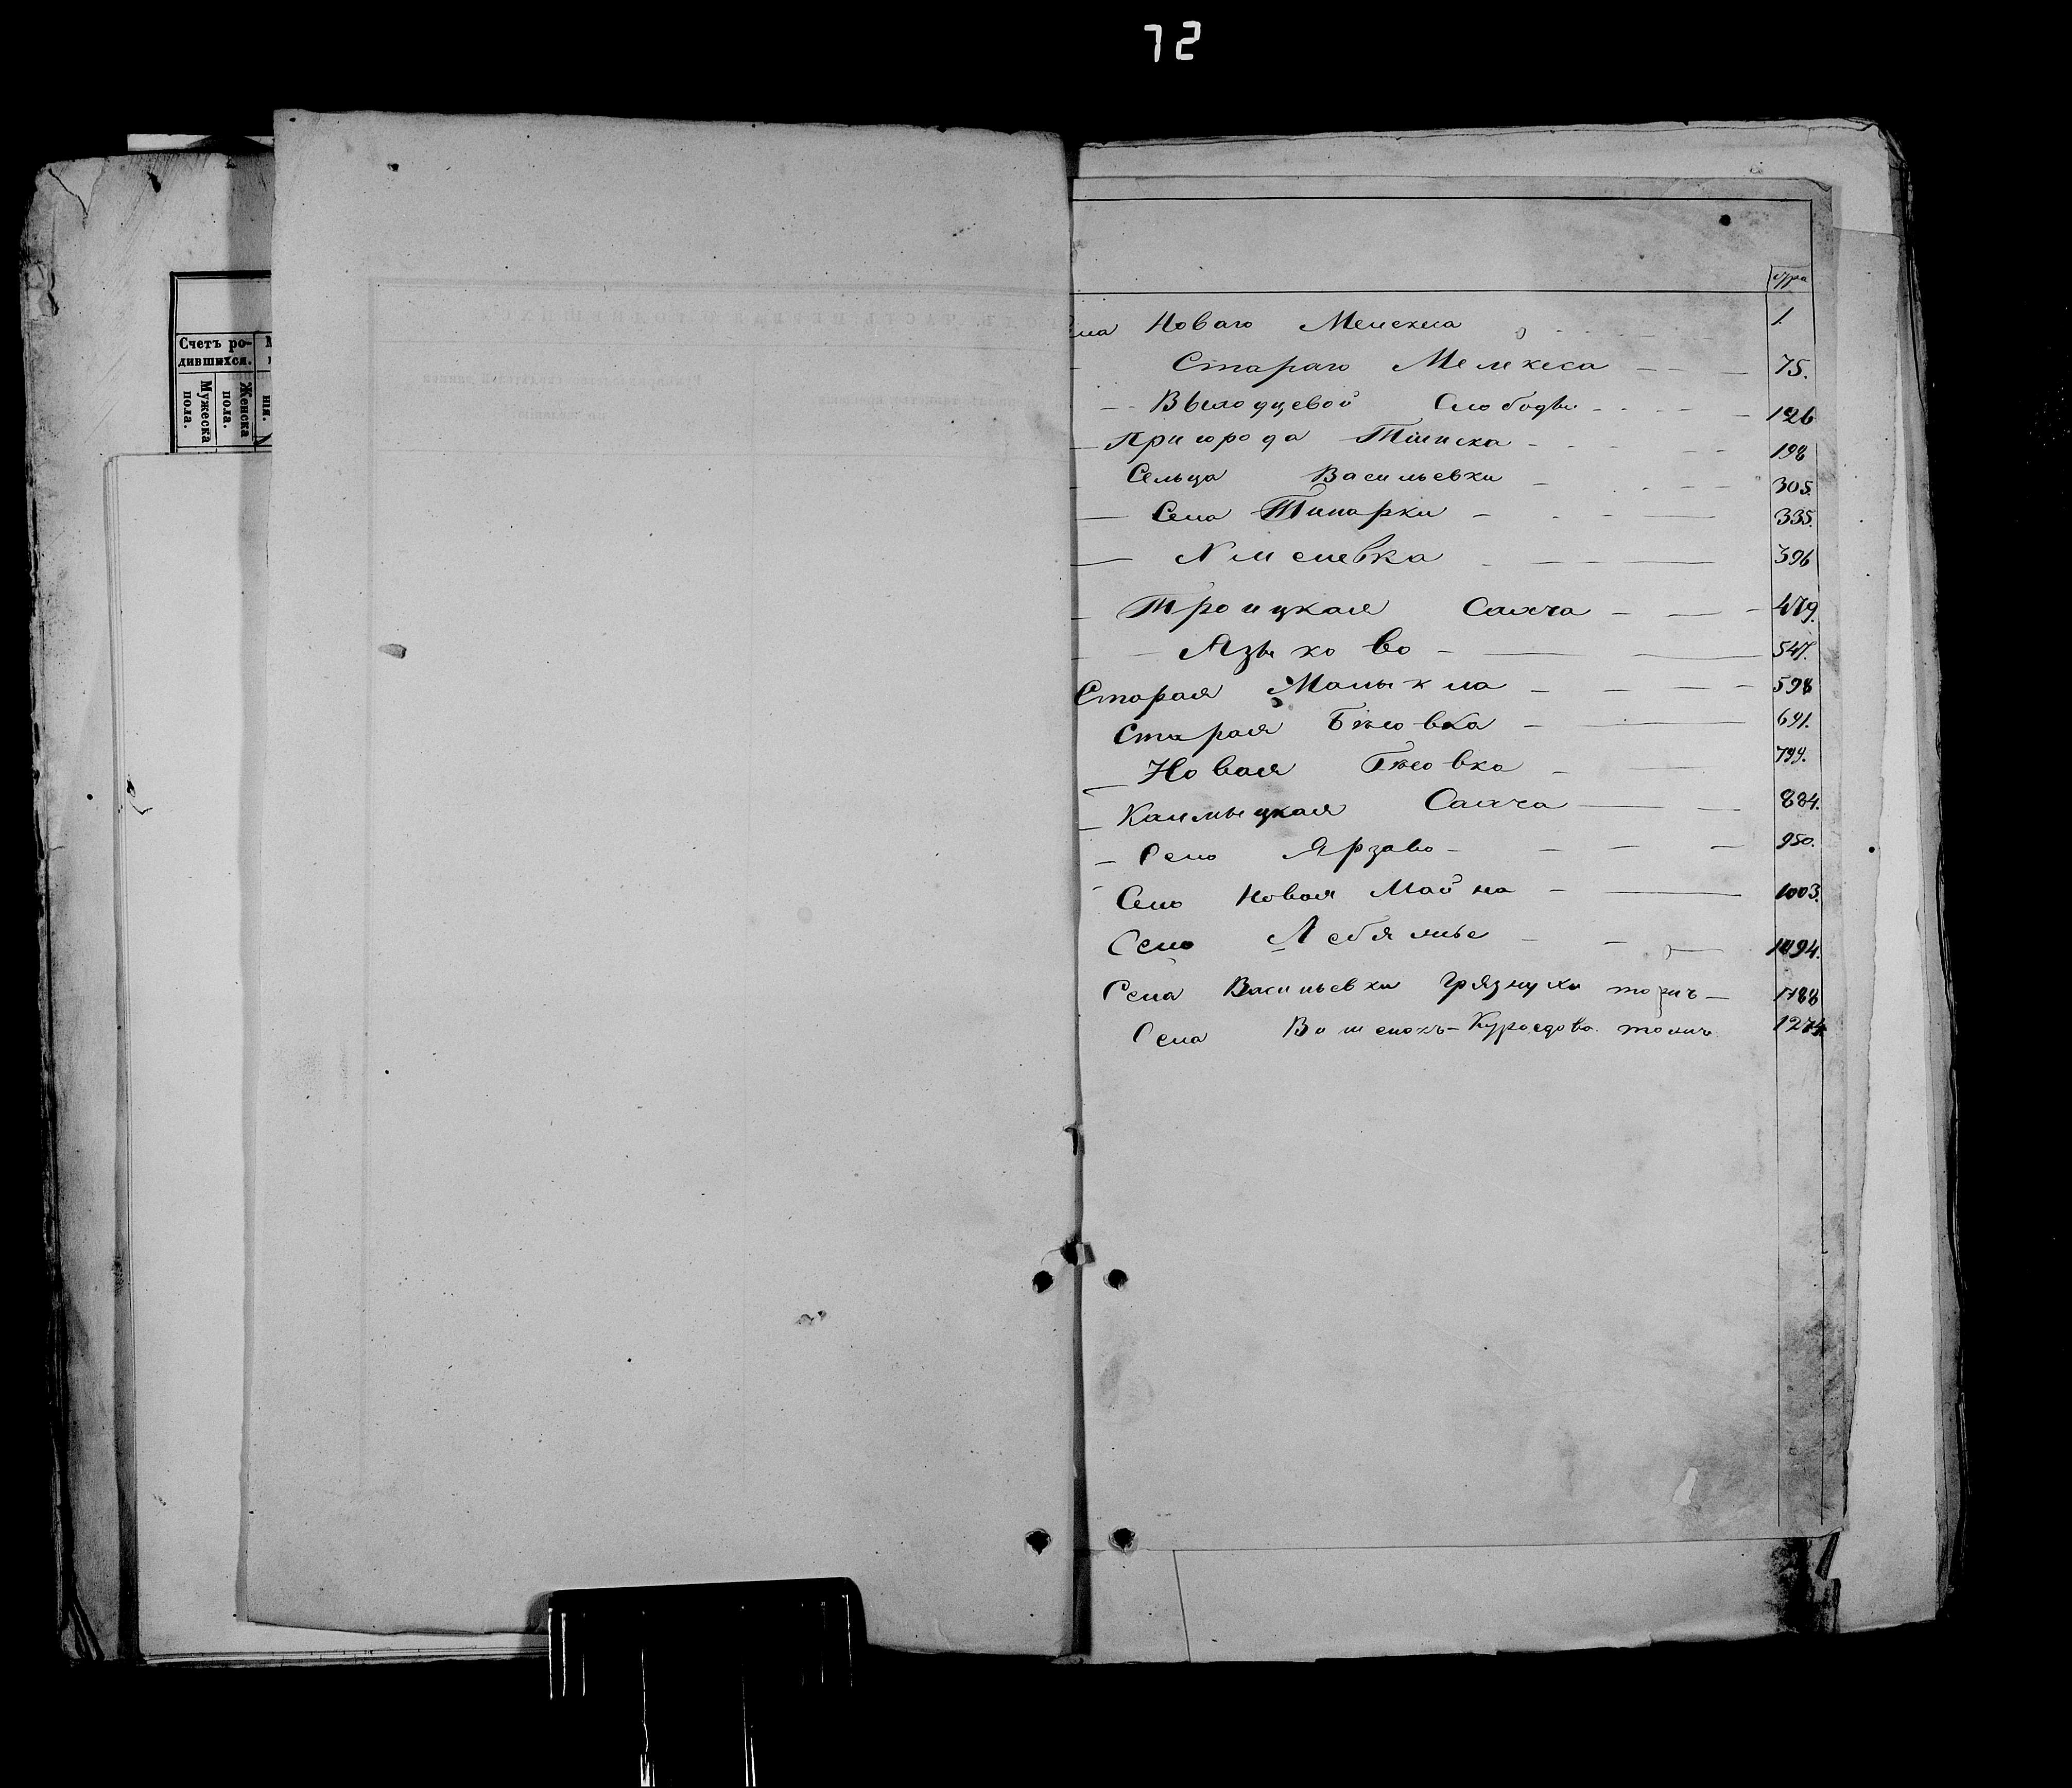 72
Счетъ ро-
дившихся.
Мужеска
пола.
Женска
пола.
нія.
стра
ла Новаго Мелекеса 1.
Стараго Мелекеса 75.
Выходцевой Слободы 126
Пригорода Тіинска 198
Сельца Васильевки 305.
Села Тинарки 335.
396
Троицкая Сахча 479.
Языково 547.
Старая Малыкла 598
Старая Бѣсовка 691.
Новая Бѣсовка 799.
Калмыцкая Сахча 884.
Село 950.
Село Новая Майна 1003.
Село Лебяжье 1094.
Села Васильевки Грязнухи тожъ 1188
Села Куроедово тожъ 1274